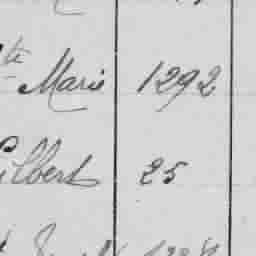 te Marie 1292
Gilbert 25